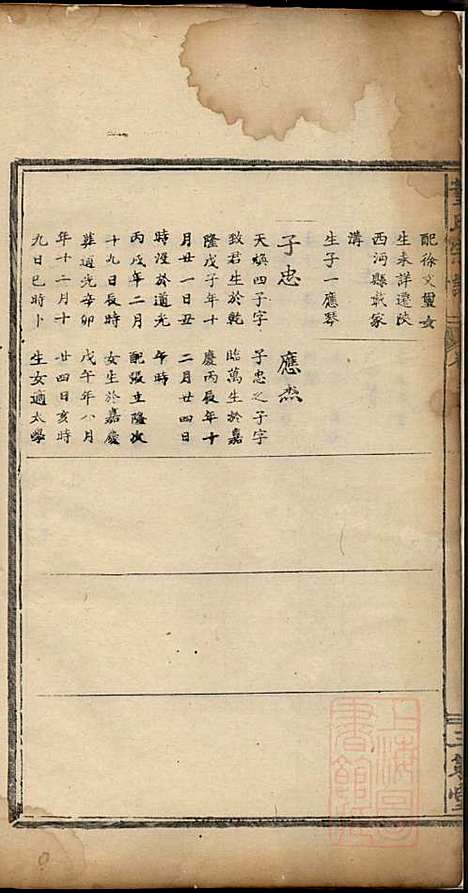 配徐文璽女
生未詳遷陝
西沔縣戴家
溝
生子一應琴
子忠
天煥四子字
致君生於乾
隆戊子年十
月廿一日丑
時歿於道光
丙戌年二月
十九日辰時
葬道光辛卯
年十二月十
九日巳時卜
應杰
子忠之子字
貽萬生於嘉
慶丙辰年十
二月廿四日
午時
配張立隆次
女生於嘉慶
戊午年八月
廿四日亥時
生女適太學
上海圖
書館藏